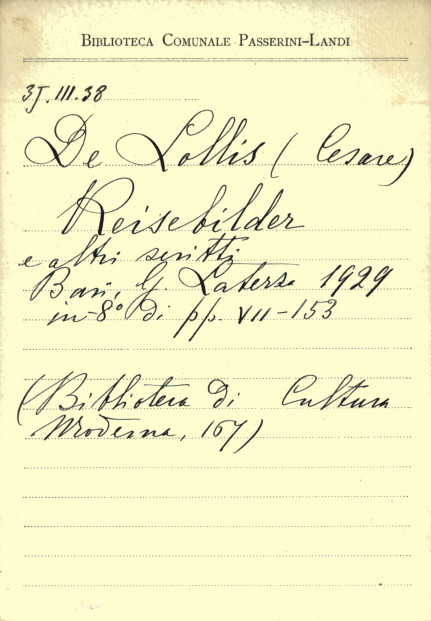 BIBLIOTECA COMUNALE PASSERINI-LANDI
3J.III.38
De Lollis (Cesare)
Reisebilder
e altri scritti
Bari, G. Laterza 1929
in-8° di pp. VII-153
(Biblioteca di Cultura
Moderna, 167)